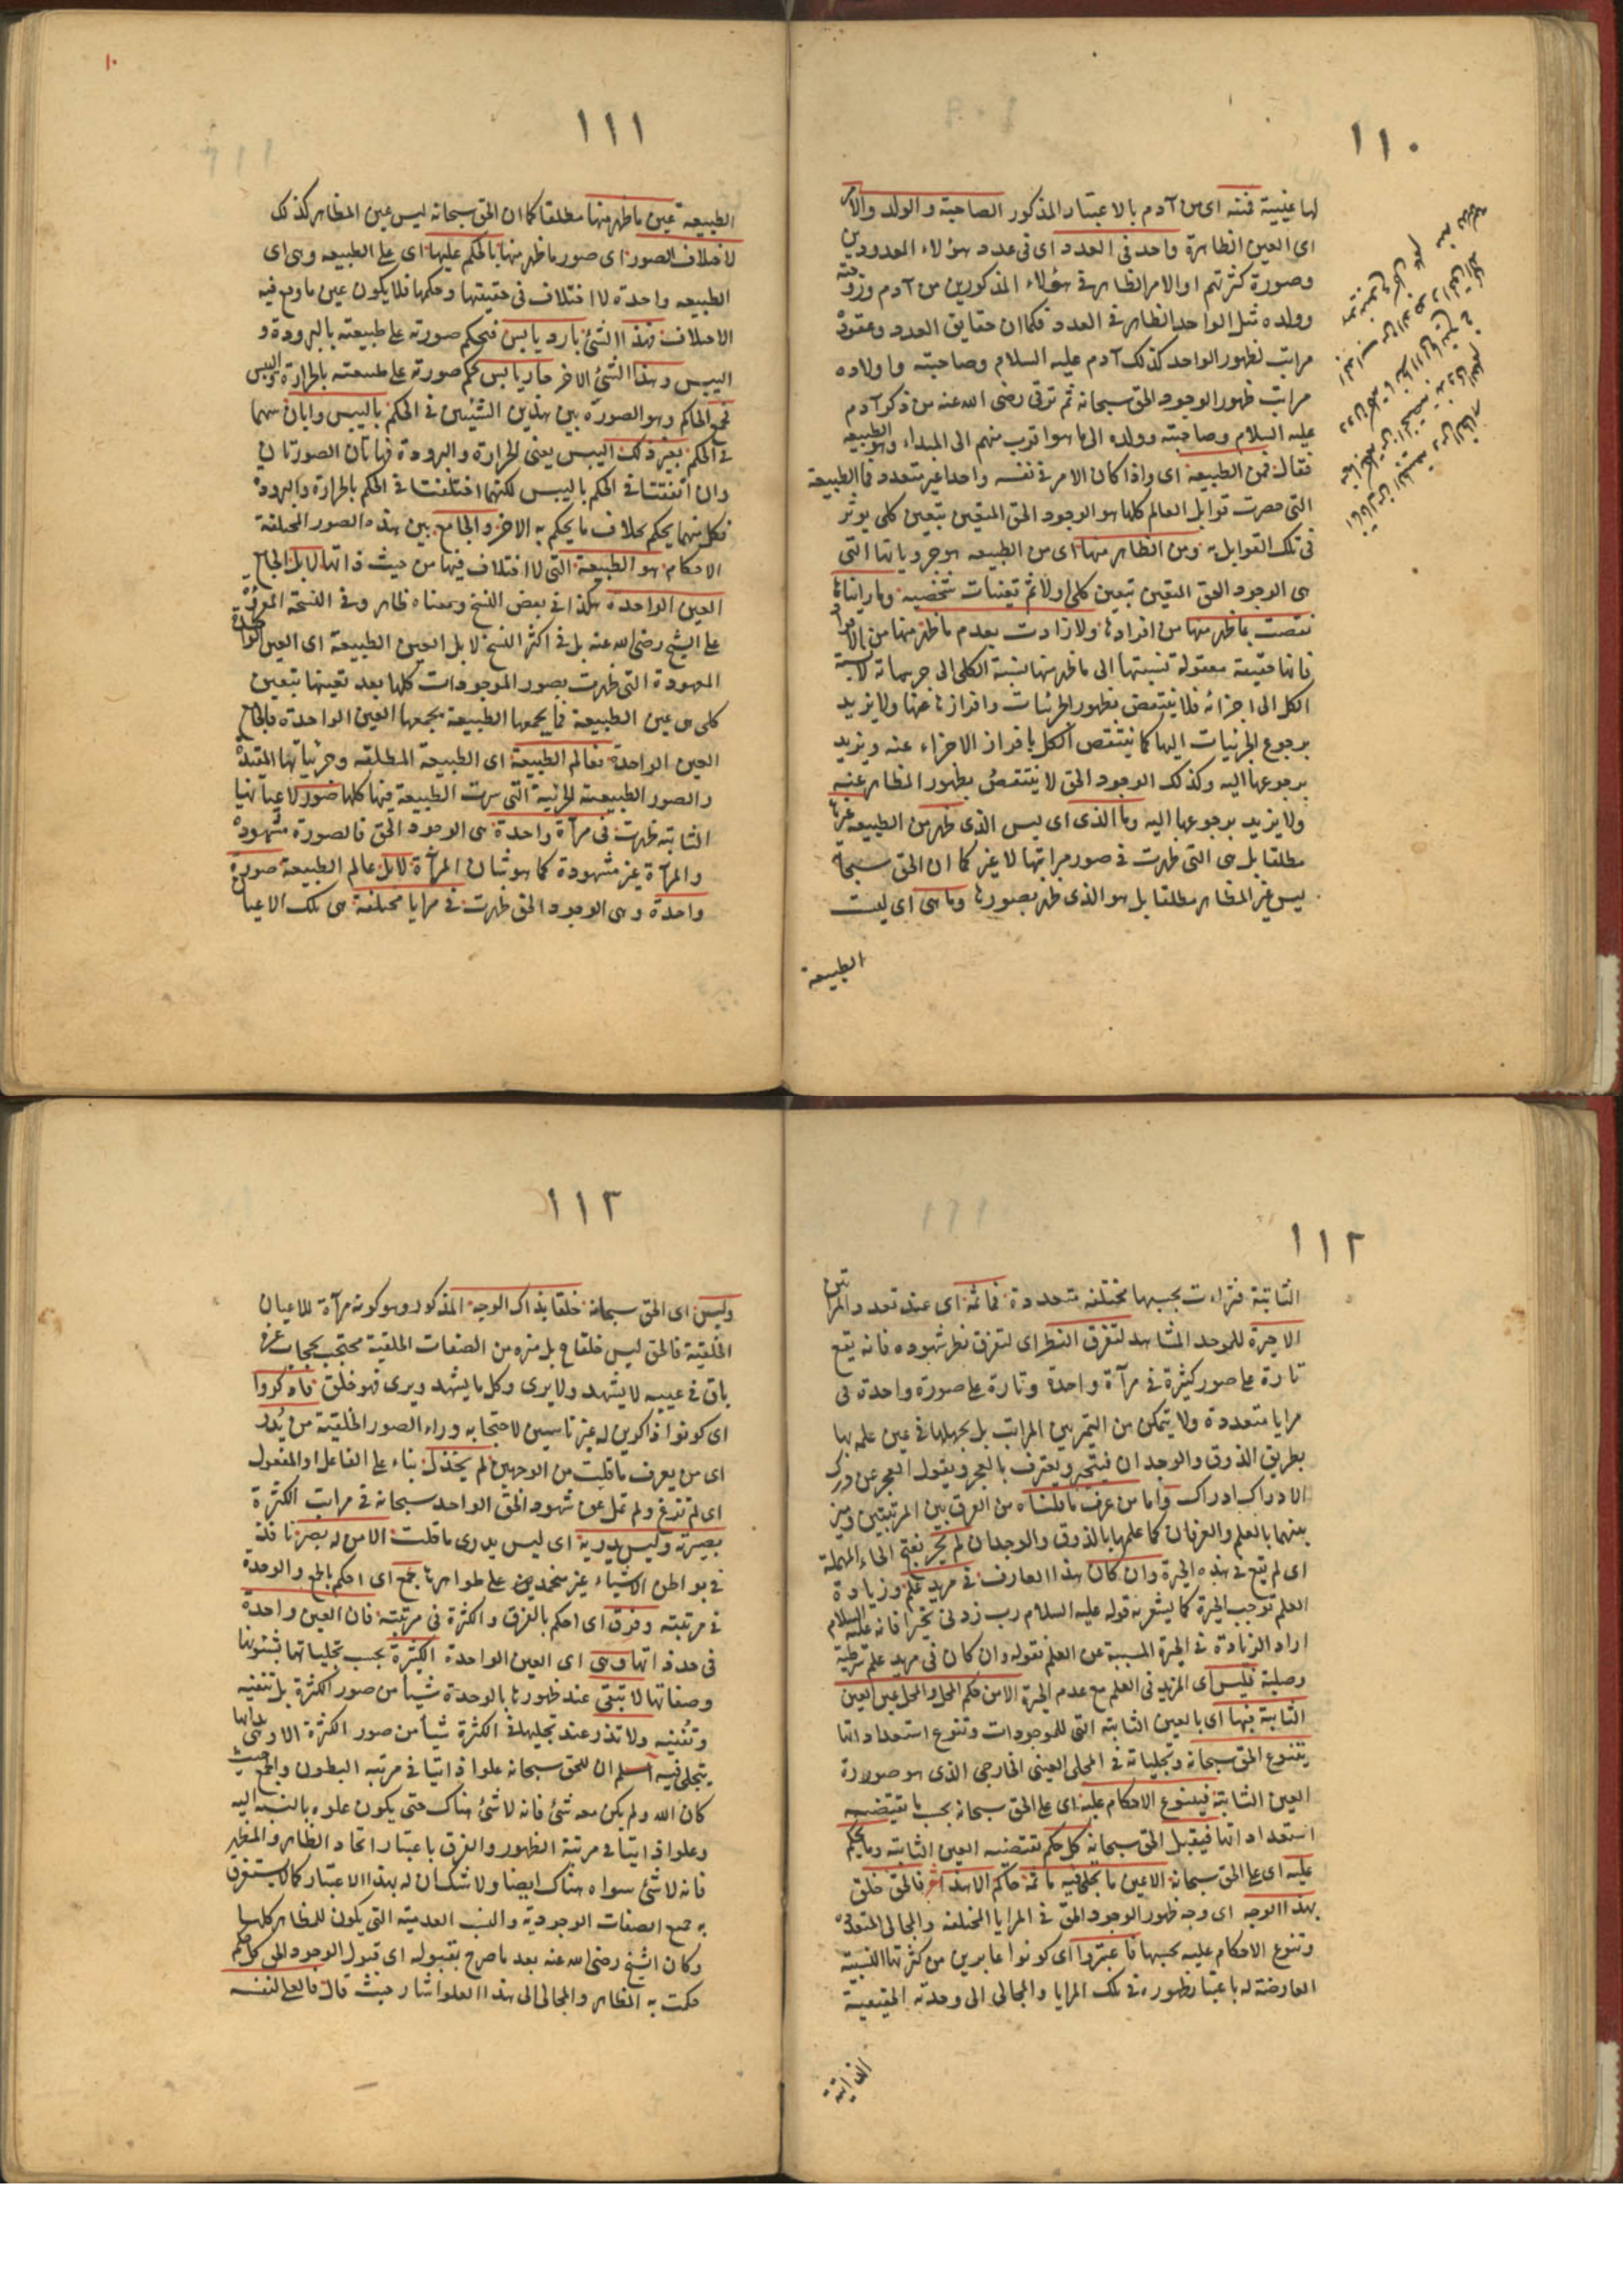 ١١٠
لها غيبية فمنه اى من آدم بالاعتبار المذكور الصاحبة والولد والامر
اى العين الظاهرة واحد فى العدد اى فى عدد هؤلاء المعدودين
وصورة كثرتهم او الامر الظاهر فى هؤلاء المذكورين من آدم وزوجته
وولده مثل الواحد الظاهر فى العدد فكما ان حقايق العدد وعقوده
مراتب لظهور الواحد كذلك آدم عليه السلام وصاحبته واولاده
مراتب ظهور الوجود الحق سبحانه ثم ترقى رضى الله عنه من ذكر آدم
عليه السلام وصاحبته وولده الى ما هو اقرب منهم الى المبداء وهو الطبيعه
فقال فمن الطبيعة اى واذا كان الامر فى نفسه واحدا غير متعدد فما الطبيعة
التى حصرت قوابل العالم كلها هو الوجود الحق المتعين بتعين كلى يوثر
فى تلك القوابل ومن الظاهر منها اى من الطبيعه هو جزوياتها التى
هى الوجود الحق المتعين بتعين كلى اولا ثم تعينات شخصيه وما رايناها
نقصت بما ظهر منها من افرادها ولا زادت بعدم ما ظهر منها من الافراد
فانها حقيقة معقولة نسبتها الى ما ظهر منها نسبة الكلى الى جزيياته لا نسبة
الكل الى اجزائه فلا ينتقص بظهور الجزئيات وافرازها عنها ولا يزيد
برجوع الجزئيات اليها كما ينتقص الكل بافراز الاجزاء عنه ويزيد
برجوعها اليه وكذلك الوجود الحق لا ينتقص بظهور المظاهر عنه
ولا يزيد برجوعها اليه وما الذى اى ليس الذى ظهر من الطبيعه غيرها
مطلقا بل هى التى ظهرت فى صور مراتبها لا غير كما ان الحق سبحانه
ليس غير المظاهر مطلقا بل هو الذى ظهر بصورها وما هى اى ليست
الطبيعة
١١١
الطبيعة عين ما ظهر منها مطلقا كما ان الحق سبحانه ليس عين المظاهر كذلك
لاختلاف الصور اى صور ما ظهر منها بالحكم عليها اى على الطبيعه وهى اى
الطبيعه واحدة لا اختلاف فى حقيقتها وحكمها فلا يكون عين ما وقع فيه
الاختلاف فهذا الشئ بارد يابس فنحكم صورته على طبيعته بالبرودة و
اليبس وهذا الشئ الاخر حار يابس نحكم صورته على طبيعته بالحرارة واليبس
فجمع الحاكم وهو الصورة بين هذين الشيئين فى الحكم باليبس وابان بينهما
فى الحكم بغير ذلك اليبس يعنى الحرارة والبرودة فهاتان الصورتان
وان اتفقتا فى الحكم باليبس لكنهما اختلفتا فى الحكم بالحرارة والبرودة
فكل منهما يحكم بخلاف ما يحكم به الاخر والجامع بين هذه الصور المختلفة
الاحكام هو الطبيعة التى لا اختلاف فيها من حيث ذاتها لا بل الجامع
العين الواحدة هكذا فى بعض النسخ ومعناه ظاهر وفى النسخة المقروءة
على الشيخ رضى الله عنه بل فى اكثر النسخ لا بل العين الطبيعة اى العين الواحدة
المعهودة التى ظهرت بصور الموجودات كلها بعد تعينها بتعين
كلى هى عين الطبيعة فما يجمعها الطبيعة يجمعها العين الواحدة فالجامع
العين الواحدة فعالم الطبيعة اى الطبيعة المطلقه وجزئياتها المقيدة
والصور الطبيعية الجزئية التى سرت الطبيعة فيها كلها صور لاعيانها
الثابته ظهرت فى مرآة واحدة هى الوجود الحق فالصورة مشهودة
والمرآة غير مشهودة كما هو شان المرآة لا بل عالم الطبيعة صورة
واحدة وهى الوجود الحق ظهرت فى مرايا مختلفة هى تلك الاعيان
١١٢
الثابتة فتراءت بحسبها مختلفه متعددة فما ثمه اى عند تعدد المراتين
الا حيرة للموحد المشاهد لتفرق النظر اى لتفرق نظر شهوده فانه يقع
تارة على صور كثيرة فى مرآة واحدة وتارة على صورة واحدة فى
مرايا متعددة ولا يتمكن من التميز بين المراتب بل يجهلها فى عين علمه بها
بطريق الذوق والوجدان فيتحير ويعترف بالعجز ويقول العجز عن درك
الادراك ادراك واما من عرف ما قلناه من الفرق بين المرتبتين وميز
بينهما بالعلم والعرفان كما علمها بالذوق والوجدان لم يحر بفتح الحاء المهملة
اى لم يقع فى هذه الحيرة وان كان هذا العارف فى مزيد علم وزيادة
العلم توجب الحيرة كما يشعر به قوله عليه السلام رب زدنى تحيرا فانه عليه السلام
اراد الزيادة فى الحيرة المسببة عن العلم فقوله وان كان فى مزيد علم شرطية
وصلية فليس اى المزيد فى العلم مع عدم الحيرة الا من حكم المحل والمحل عين العين
الثابتة فيها اى بالعين الثابته التى للموجودات وتنوع استعداداتها
يتنوع الحق سبحانه وتجلياته فى المجلى العينى الخارجى الذى هو صورة
العين الثابتة فيتنوع الاحكام عليه اى على الحق سبحانه بحسب ما يقتضيه
استعداداتها فيقبل الحق سبحانه كل حكم تقتضيه العين الثابته وما يحكم
عليه اى على الحق سبحانه الا عين ما تجلى فيه ما ثمه حاكم الا هذا فالحق خلق
بهذا الوجه اى وجه ظهور الوجود الحق فى المرايا المختلفه والمجالى المتعددة
وتنوع الاحكام عليه بحسبها فاعتبروا اى كونوا عابرين من كثرتها النسبية
العارضة له باعتبار ظهوره فى تلك المرايا والمجالى الى وحدته الحقيقية
الذاتية
١١٣
وليس اى الحق سبحانه خلقا بذاك الوجه المذكور وهو كونه مرآة للاعيان
الخلقية فالحق ليس خلقا ح بل منزه من الصفات الخلقية محتجب بحجاب عزه
باق فى غيبه لا يشهد ولا يرى وكل ما يشهد ويرى فهو خلق فادكروا
اى كونوا ذاكرين له غير ناسيين لاحتجابه وراء الصور الخلقية من يدر
اى من يعرف ما قلت من الوجهين لم تخذل بناء على الفاعل او المفعول
اى لم تزغ ولم تمل عن شهود الحق الواحد سبحانه فى مراتب الكثرة
بصيرته وليس يدريه اى ليس يدرى ما قلت الا من له بصر نافذ
فى بواطن الاشياء غير منحصر على ظواهرها جمع اى احكم بالجمع والوحدة
فى مرتبته وفرق اى احكم بالفرق والكثرة فى مرتبته فان العين واحدة
فى حد ذاتها وهى اى العين الواحدة الكثيرة بحسب تجلياتها بشئونها
وصفاتها لا تبقى عند ظهورها بالوحدة شيأ من صور الكثرة بل تنفيه
وتفنيه ولا تذر عند تجليها فى الكثرة شيأ من صور الكثرة الا وهى بذاتها
يتجلى فيه اعلم ان للحق سبحانه علوا ذاتيا فى مرتبه البطون والجمع حيث
كان الله ولم يكن معه شئ فانه لا شئ هناك حتى يكون علوه بالنسبه اليه
وعلوا ذاتيا فى مرتبة الظهور والفرق باعتبار اتحاد الظاهر والمظهر
فانه لا شئ سواه هناك ايضا ولا شك ان له بهذا الاعتبار كمالا يستغرق
به جميع الصفات الوجودية والنسب العدمية التى يكون للمظاهر كلها
وكان الشيخ رضى الله عنه بعد ما صرح بقبوله اى قبول الوجود الحق كل حكم
حكمت به المظاهر والمجالى الى هذا العلو اشار حيث قال فالعلى لنفسه